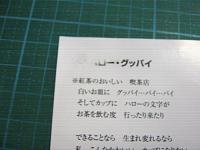 ロー・グッバイ
※紅茶のおいしい 喫茶店
白いお皿に グッバイ…バイ…バイ
そしてカップに ハローの文字が
お茶を飲む度 行ったり来たり
できることなら 生まれ変れるなら